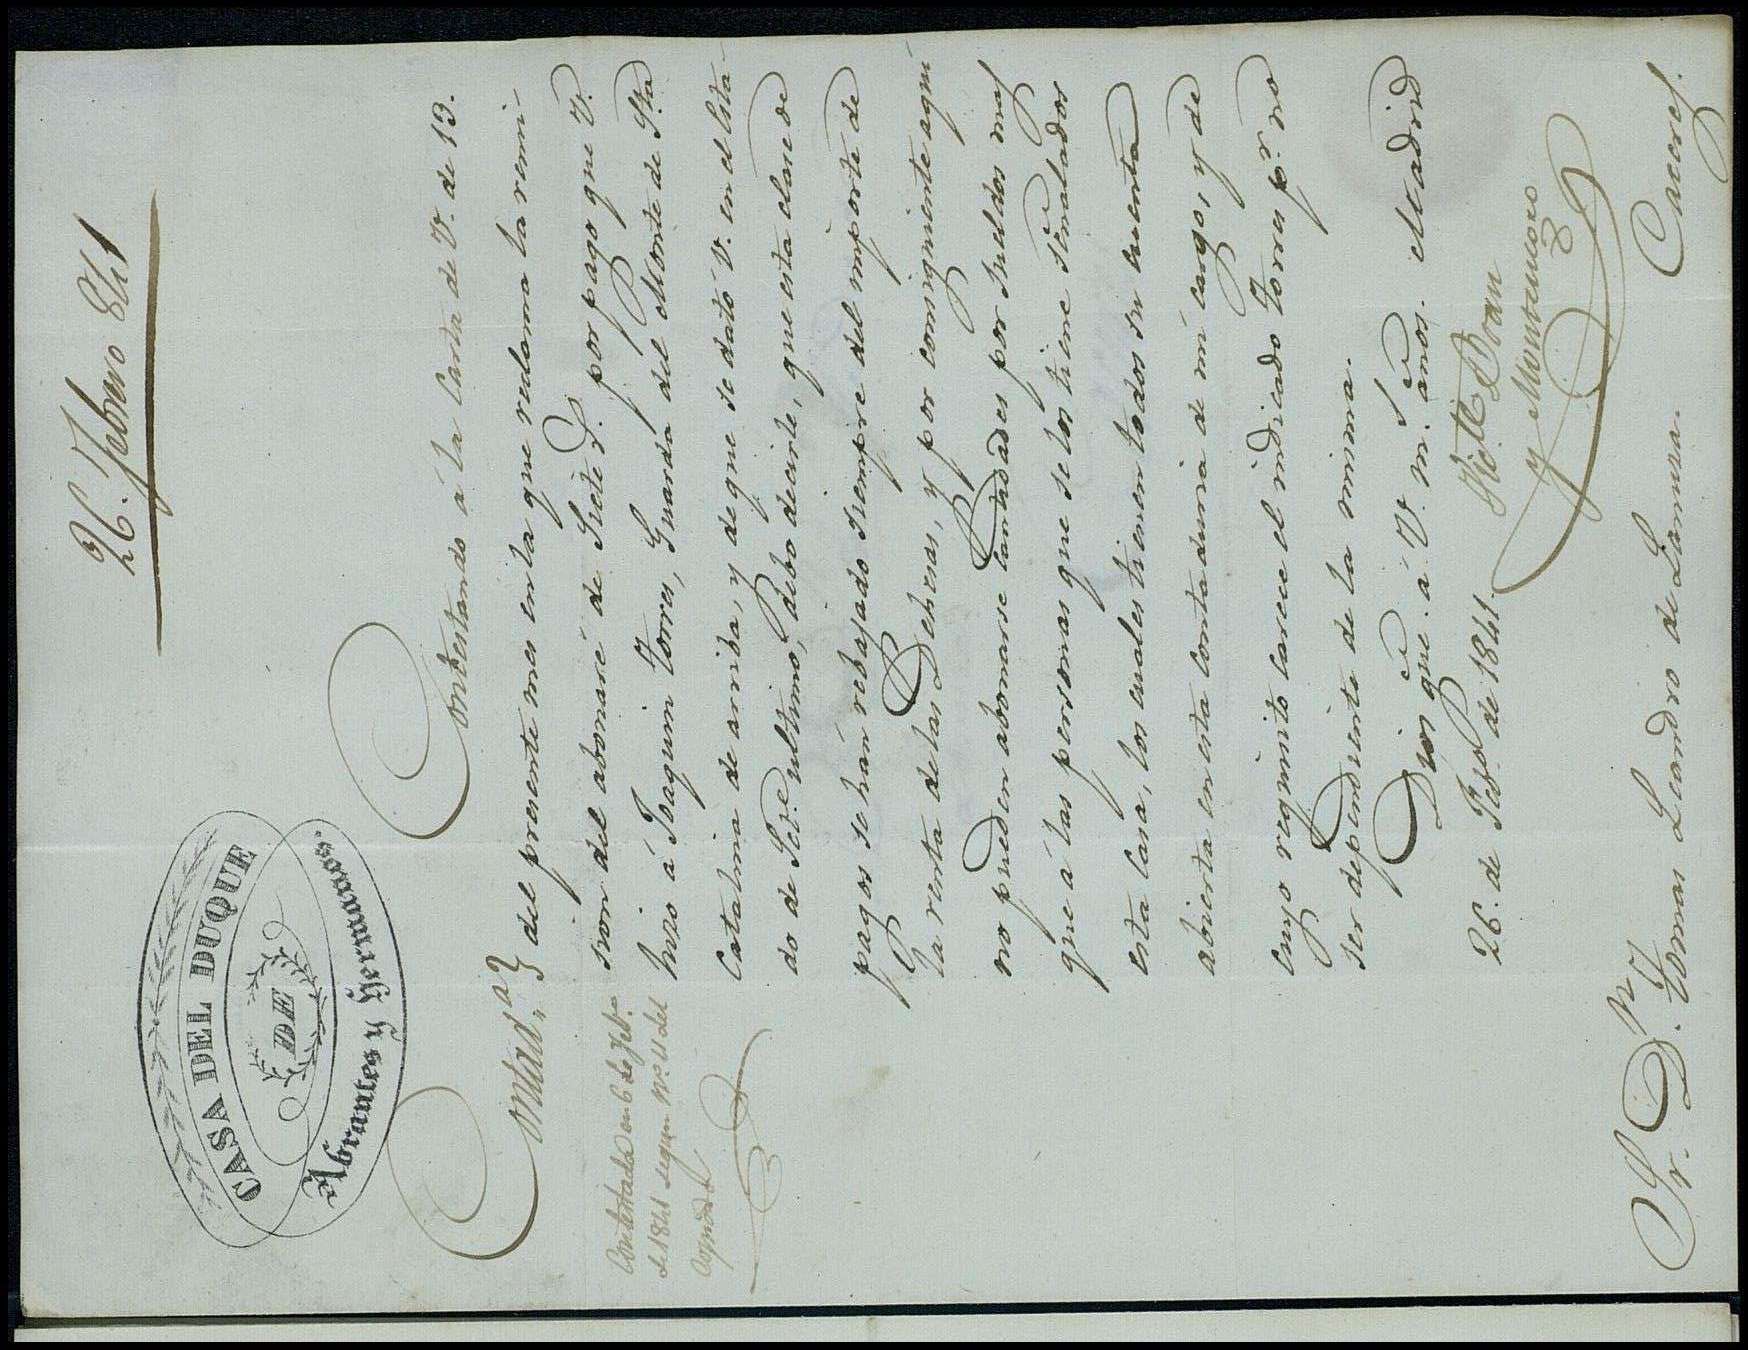 26. Febrero 841
CASA DEL DUQUE
DE
Abrantes y Hermanos.
Contad.ª
Contestando á la Carta de V. de 13.
del presente mes en la que reclama la remi-
sion del abonaré de Siete D. por pago que V.
hizo á Joaquin Torres, Guarda del Monte de Sta
Catalina de arriba, y de que se dató V. en el Esta-
do de ultimo, debo decirle, que esta clase de
pagos se han rebajado siempre del importe de
la renta de las Dehesas, y por consiguiente aqui
no pueden abonarse cantidades por sueldos mas
que á las personas que se los tiene señalados
esta casa, los cuales tienen todos su cuenta
abierta en esta contaduria de mi cargo, y de
cuyo requisito carece el indicado Torres p.r no
ser dependiente de la misma.
Dios gue. á V. m.s años. Madrid
26. de Feb.o de 1841.
y Montenuovo
Contestada en 6 de
de 1841 segun Nº 11 del
Copiador
Sr. D.n Tomas Leandro de Lamua. Caceres.